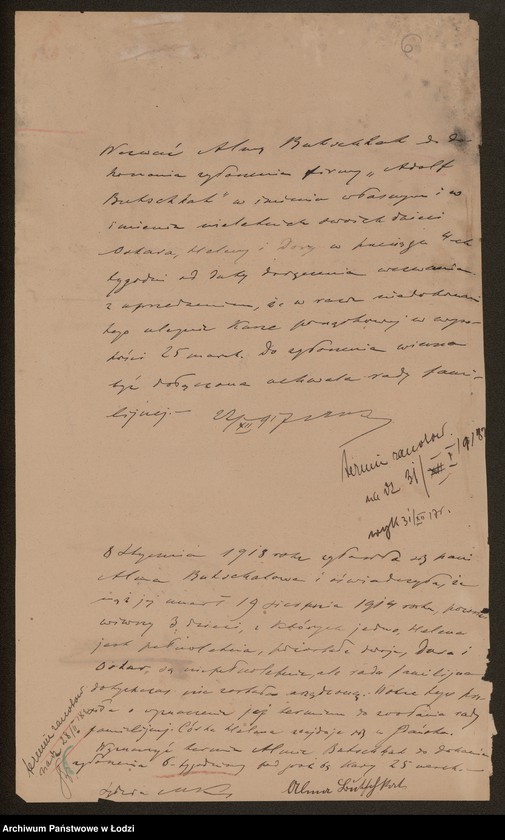 6
Wezwać Almę Butschkat do do-
konania zgłoszenia firmy „Adolf
Butschkat" w imieniu własnym i w
imieniu nieletnich swoich dzieci
Oskara, Heleny i Dory w przeciągu 4-ch
tygodni od daty doręczenia wezwania
z uprzedzeniem, że w razie niedokonania
tego ulegnie karze porządkowej w wyso-
kości 25 marek. Do zgłoszenia winna
być dołączona uchwała rady fami-
lijnej.— 22/XII 917
termin zanotow.
na dz 31/I 1918
wyk 31/XII 17 r.
8 Stycznia 1918 roku zgłosiła się pani
Alma Butschkatowa i oświadczyła, że
mąż jej umarł 19 sierpnia 1914 roku, pozosta-
wiwszy 3 dzieci, z których jedno, Helena
jest pełnoletnia, pozostałe dwoje, Dora i
Oskar, są niepełnoletnie, ale rada familijna
dotychczas nie została urządzoną. Wobec tego pro-
siła o wyznaczenie jej terminu do zwołania rady
familijnej. Córka Helena znajduje się w
Wyznaczyć termin Almie Butschkat do dokonania
zgłoszenia 6-tygodniowy pod groźbą kary 25 marek.—
termin zanotow.
na dz 28/II 18
Sędzia
Alma Butschkat
Archiwum Państwowe w Łodzi